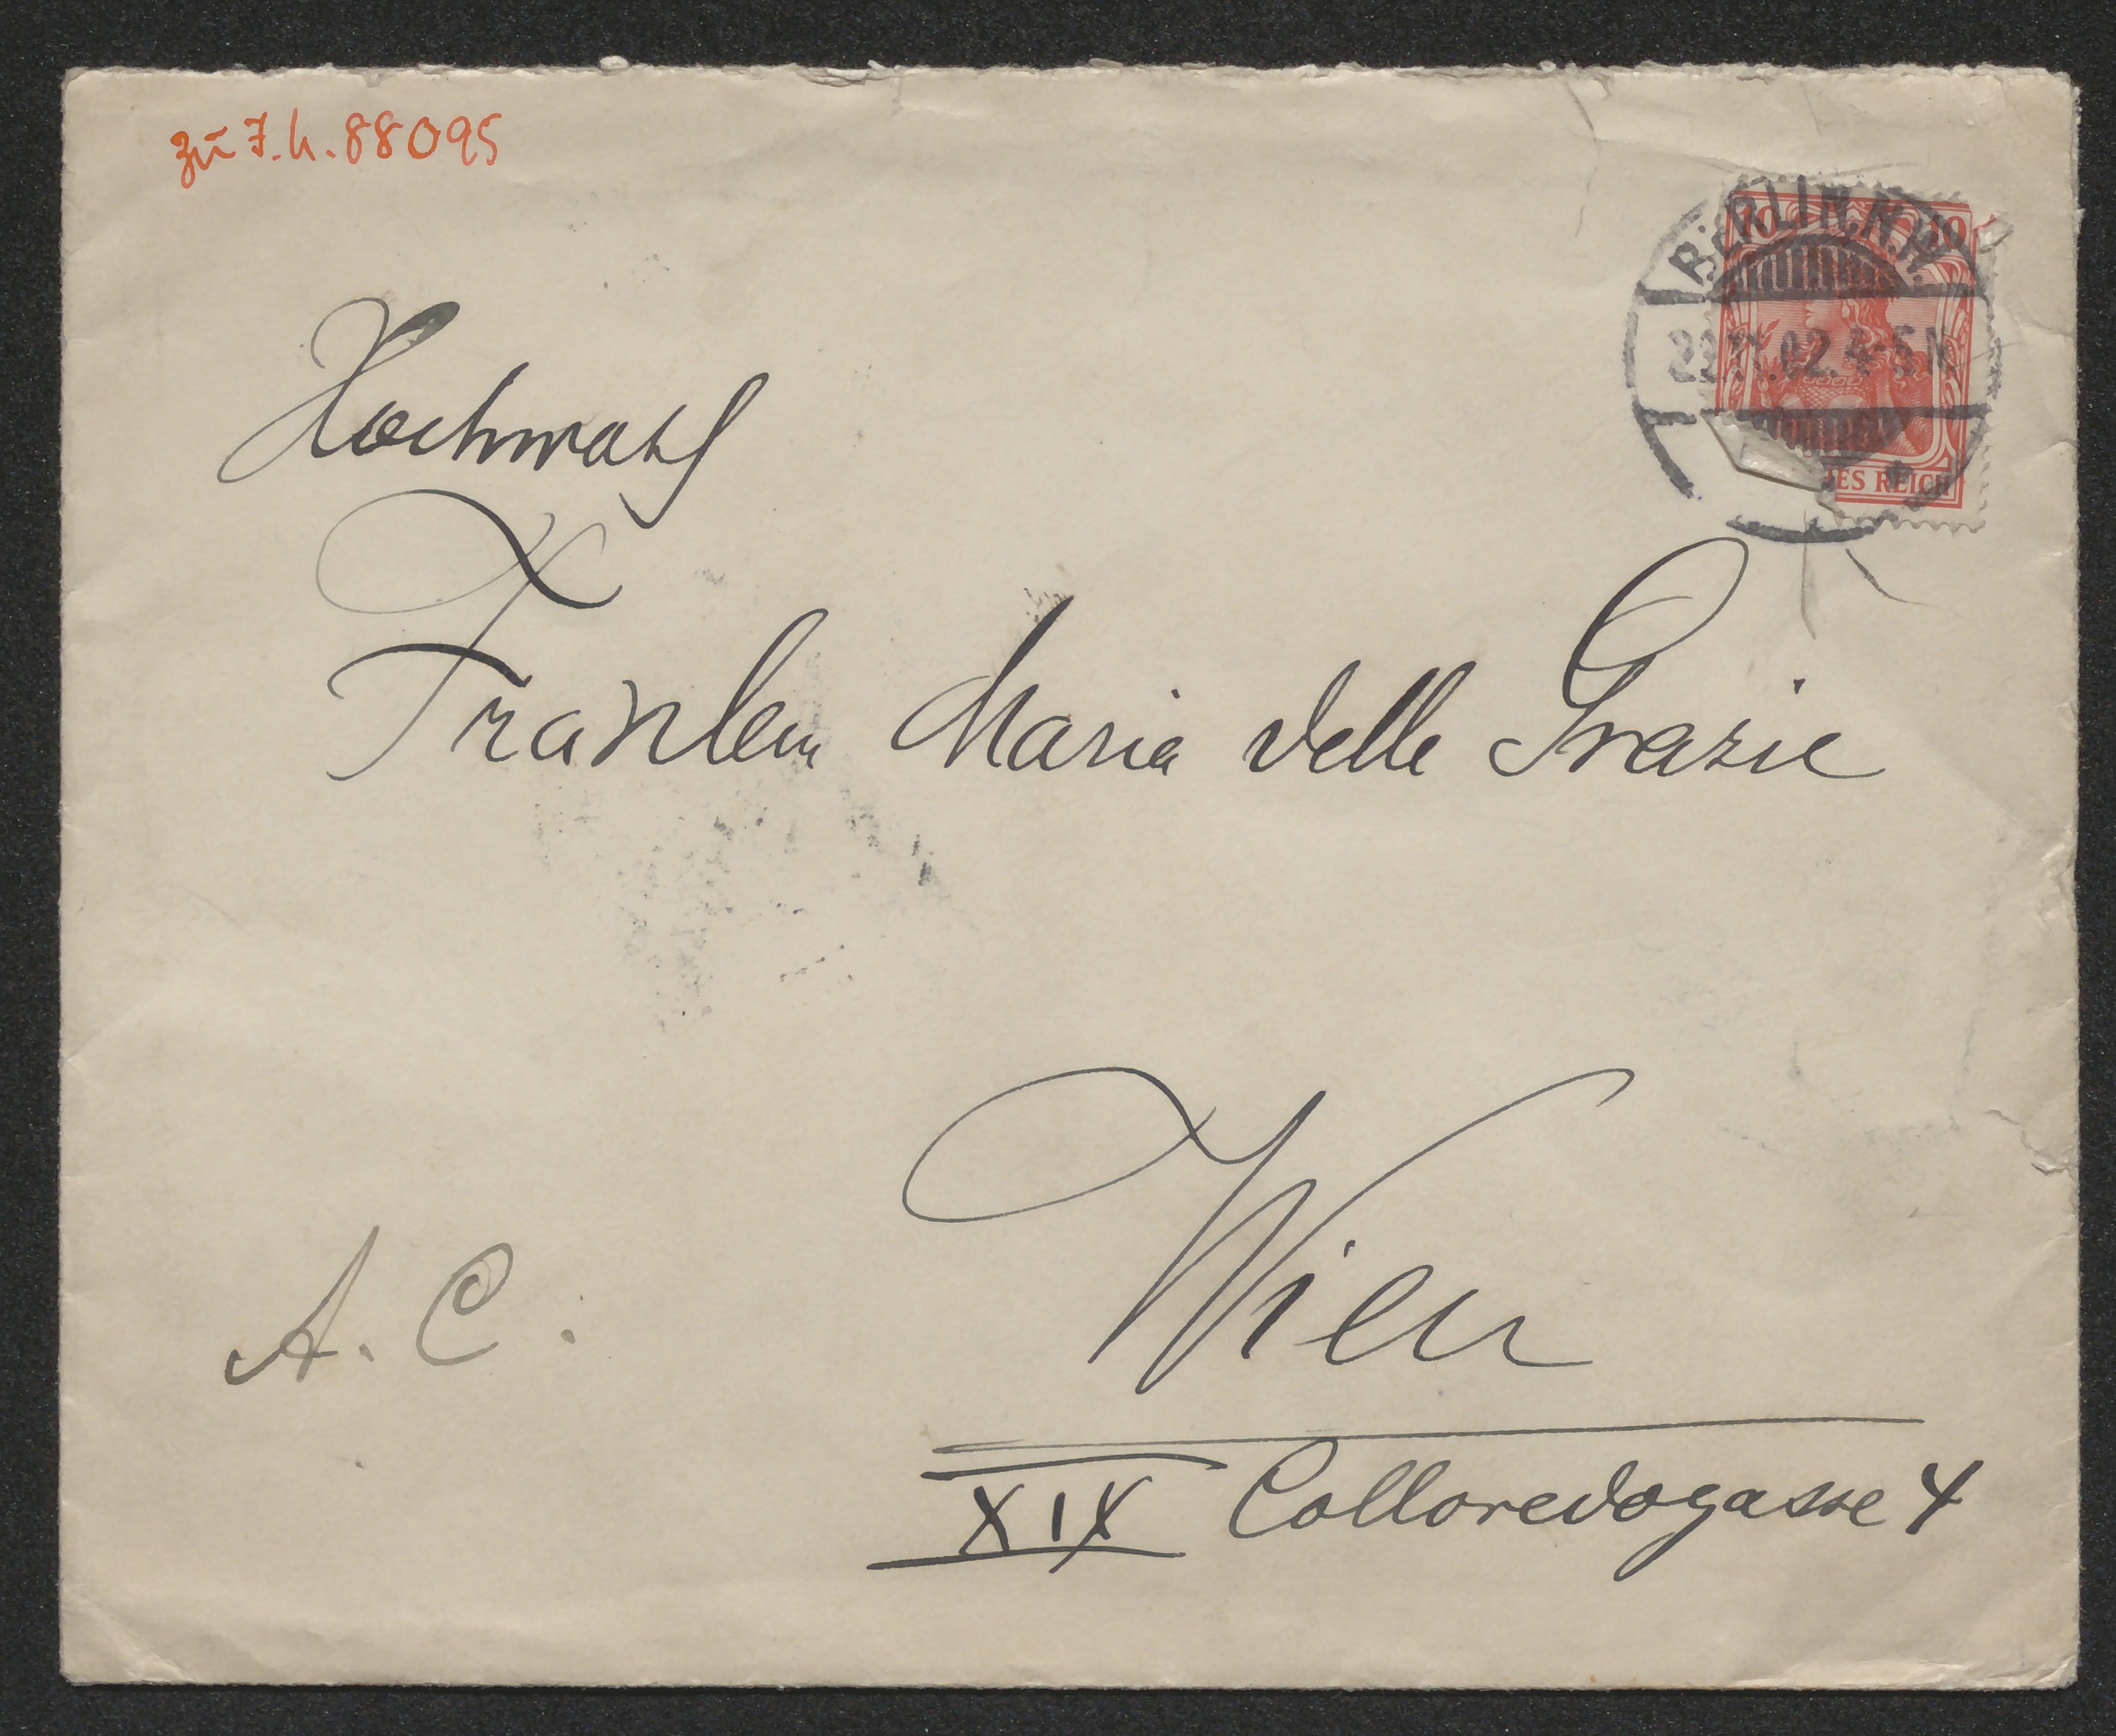 zu I.N. 88095
10 10
BERLIN. N.W.
22.11.02. 4-5 N
ES REICH
Hochwohl
Fräulein Maria delle Grazie
Wien
A. C.
XIX Colloredogasse 4